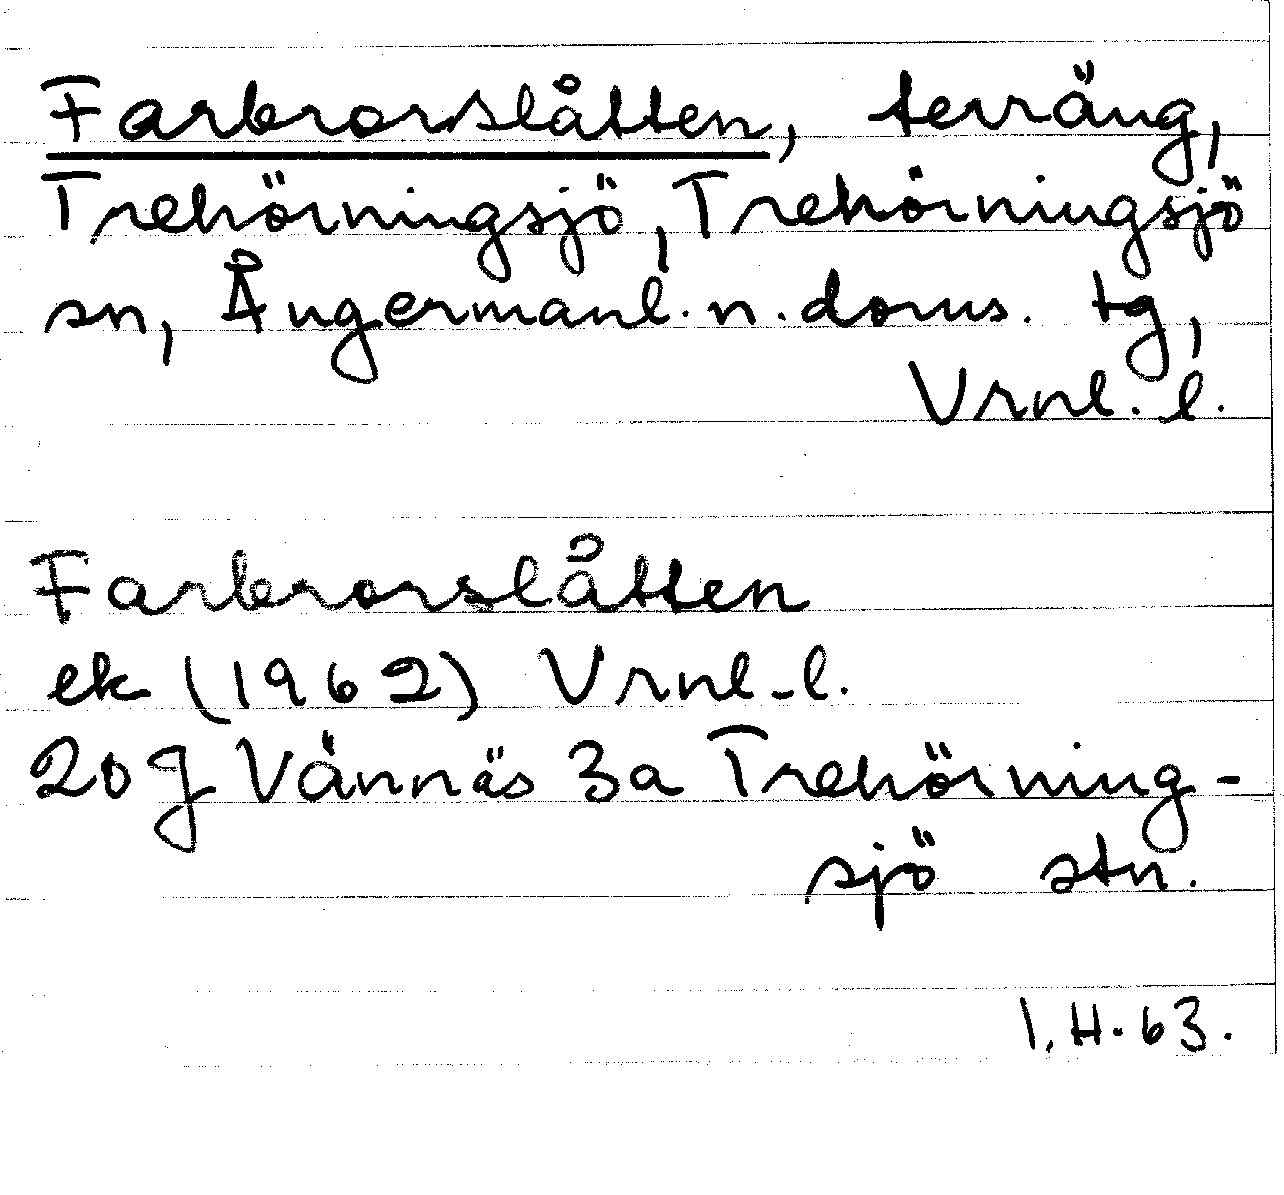 Farbrorslåtten, terräng,
Trehörningsjö, Trehörningsjö
sn, Ångermanl. n. doms. tg,
Vrnl. l.
Farbrorslåtten
ek (1962) Vrnl-l.
20 g Vännäs 3a Trehörning-
sjö stn.
I. H. 63.